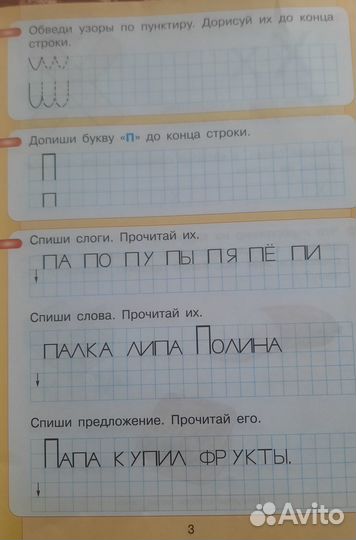 Обведи узоры по пунктиру. Дорисуй их до конца
строки.
Допиши букву «П» до конца строки.
П
п
Спиши слоги. Прочитай их.
ПА ПО ПУ ПЫ ПЯ ПЁ ПИ
Спиши слова. Прочитай их.
ПАЛКА ЛИПА ПОЛИНА
Спиши предложение. Прочитай его.
ПАПА КУПИЛ ФРУКТЫ.
3
Avito